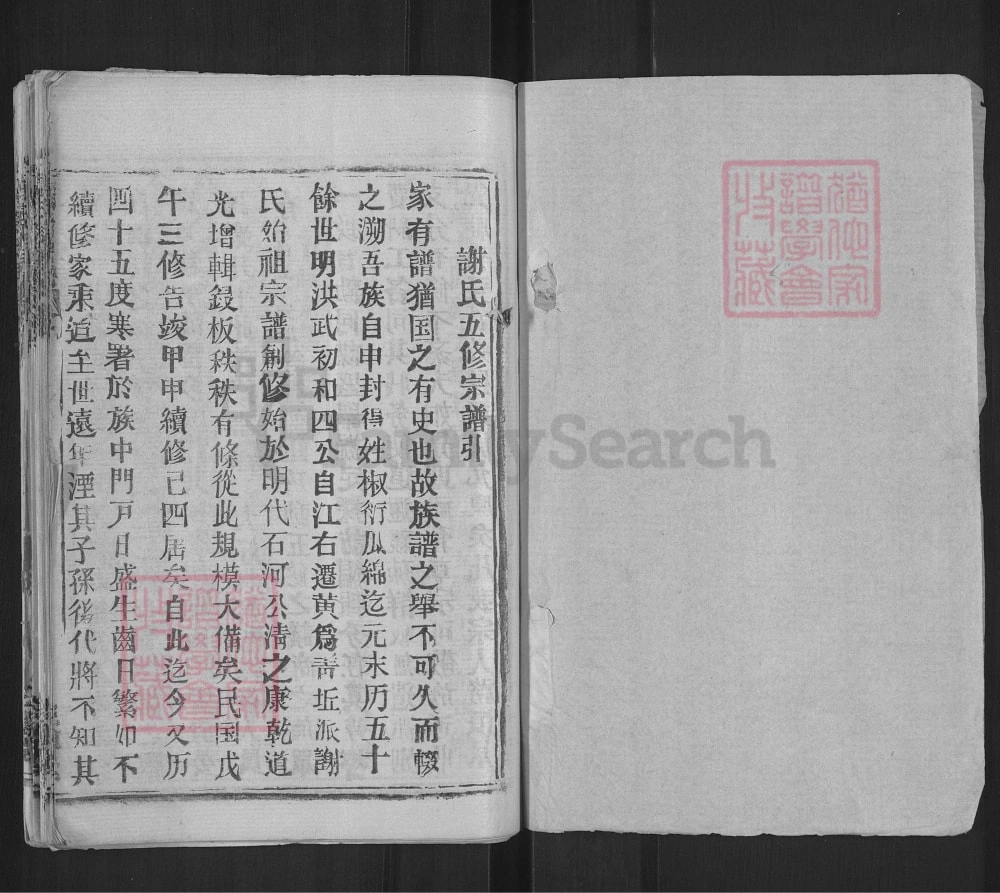 謝氏五修宗譜引
家有譜猶国之有史也故族譜之舉不可久而輟
之溯吾族自申封得姓椒衍瓜綿迄元末历五十
餘世明洪武初和四公自江右遷黄為青坵派謝
氏始祖宗譜創修始於明代石河公淸之康乾道
光增輯鋟板秩秩有條從此規模大備矣民国戊
午三修告竣甲申續修已四届矣自此迄今又历
四十五度寒署於族中門戸日盛生齒日繁如不
續修家乘道至世遠年湮其子孫後代將不知其
猶他家
譜學會
收藏
猶他家
譜學會
收藏
FamilySearch